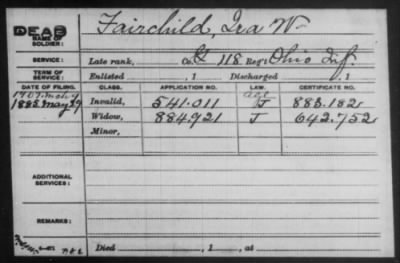 DEAD
NAME OF SOLDIER: Fairchild, Ira W
SERVICE: Late rank, Co. G 118 Reg't Ohio Inf.
TERM OF SERVICE: Enlisted , 1 Discharged , 1
DATE OF FILING. CLASS. APPLICATION NO. LAW. CERTIFICATE NO.
1907
1885 May 29 Invalid, 541.011 age J 883.182
Widow, 884.921 J 642.752
Minor,
ADDITIONAL SERVICES:
REMARKS:
Died , 1 , at